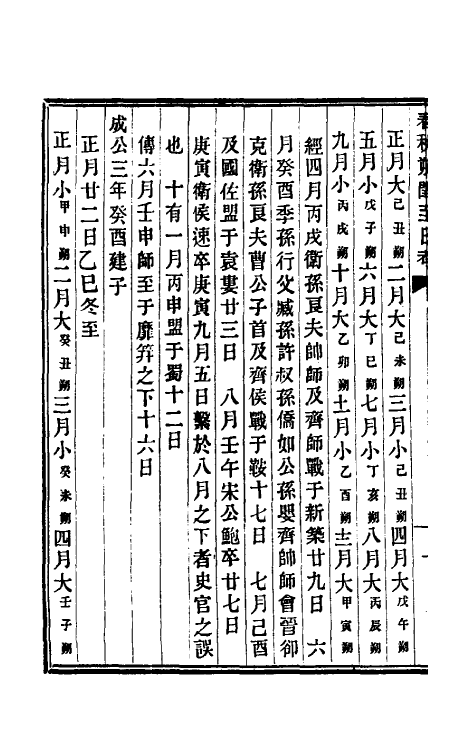 春秋朔閏至日考
正月大己丑朔二月大己未朔三月小己丑朔四月大戊午朔
五月小戊子朔六月大丁巳朔七月小丁亥朔八月大丙辰朔
九月小丙戌朔十月大乙卯朔十一月小乙酉朔十二月大甲寅朔
經四月丙戌衛孫良夫帥師及齊師戰于新築廿九日　六
月癸酉季孫行父臧孫許叔孫僑如公孫嬰齊帥師會晉郤
克衛孫良夫曹公子首及齊侯戰于鞍十七日　七月己酉
及國佐盟于袁婁廿三日　八月壬午宋公鮑卒廿七日
庚寅衛侯速卒庚寅九月五日繫於八月之下者史官之誤
也　十有一月丙申盟于蜀十二日
傳六月壬申師至于靡笄之下十六日
成公三年癸酉建子
正月廿二日乙巳冬至
正月小甲申朔二月大癸丑朔三月小癸未朔四月大壬子朔